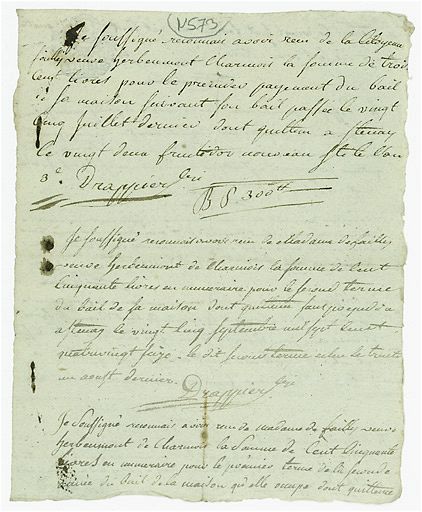 N573
Je soussigné reconnais avoir recu de la Citoyenne
failly veuve herbemont Charmois la somme de trois
cent livres pour le premier payement du bail
de sa maison suivant son bail passée le vingt
cinq juillet dernier dont quittance a Stenay
le vingt deux fructidor nouveau Stile l'an
3e. Drappier
B P 300tt
Je soussigné reconnais avoir recu de Madame de failly
veuve herbemont de Charmois la somme de Cent
Cinquante livres en numeraire pour le second terme
du bail de sa maison dont quittance
a Stenay le vingt cinq septembre mil sept cent
quatrevingt seize. le dit second terme echu le trente
un aoust dernier.
Drappier
Je Soussigné reconnais avoir recu de madame de failly veuve
herbemont de Charmois la Somme de Cent Cinquante
livres en numeraire pour le premier terme de la seconde
année du bail de la maison qu'elle occupe dont quittance